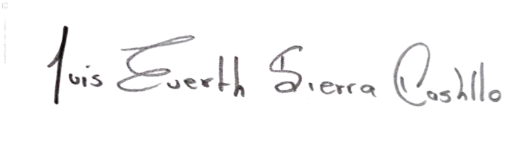 Luis Everth Sierra Castillo